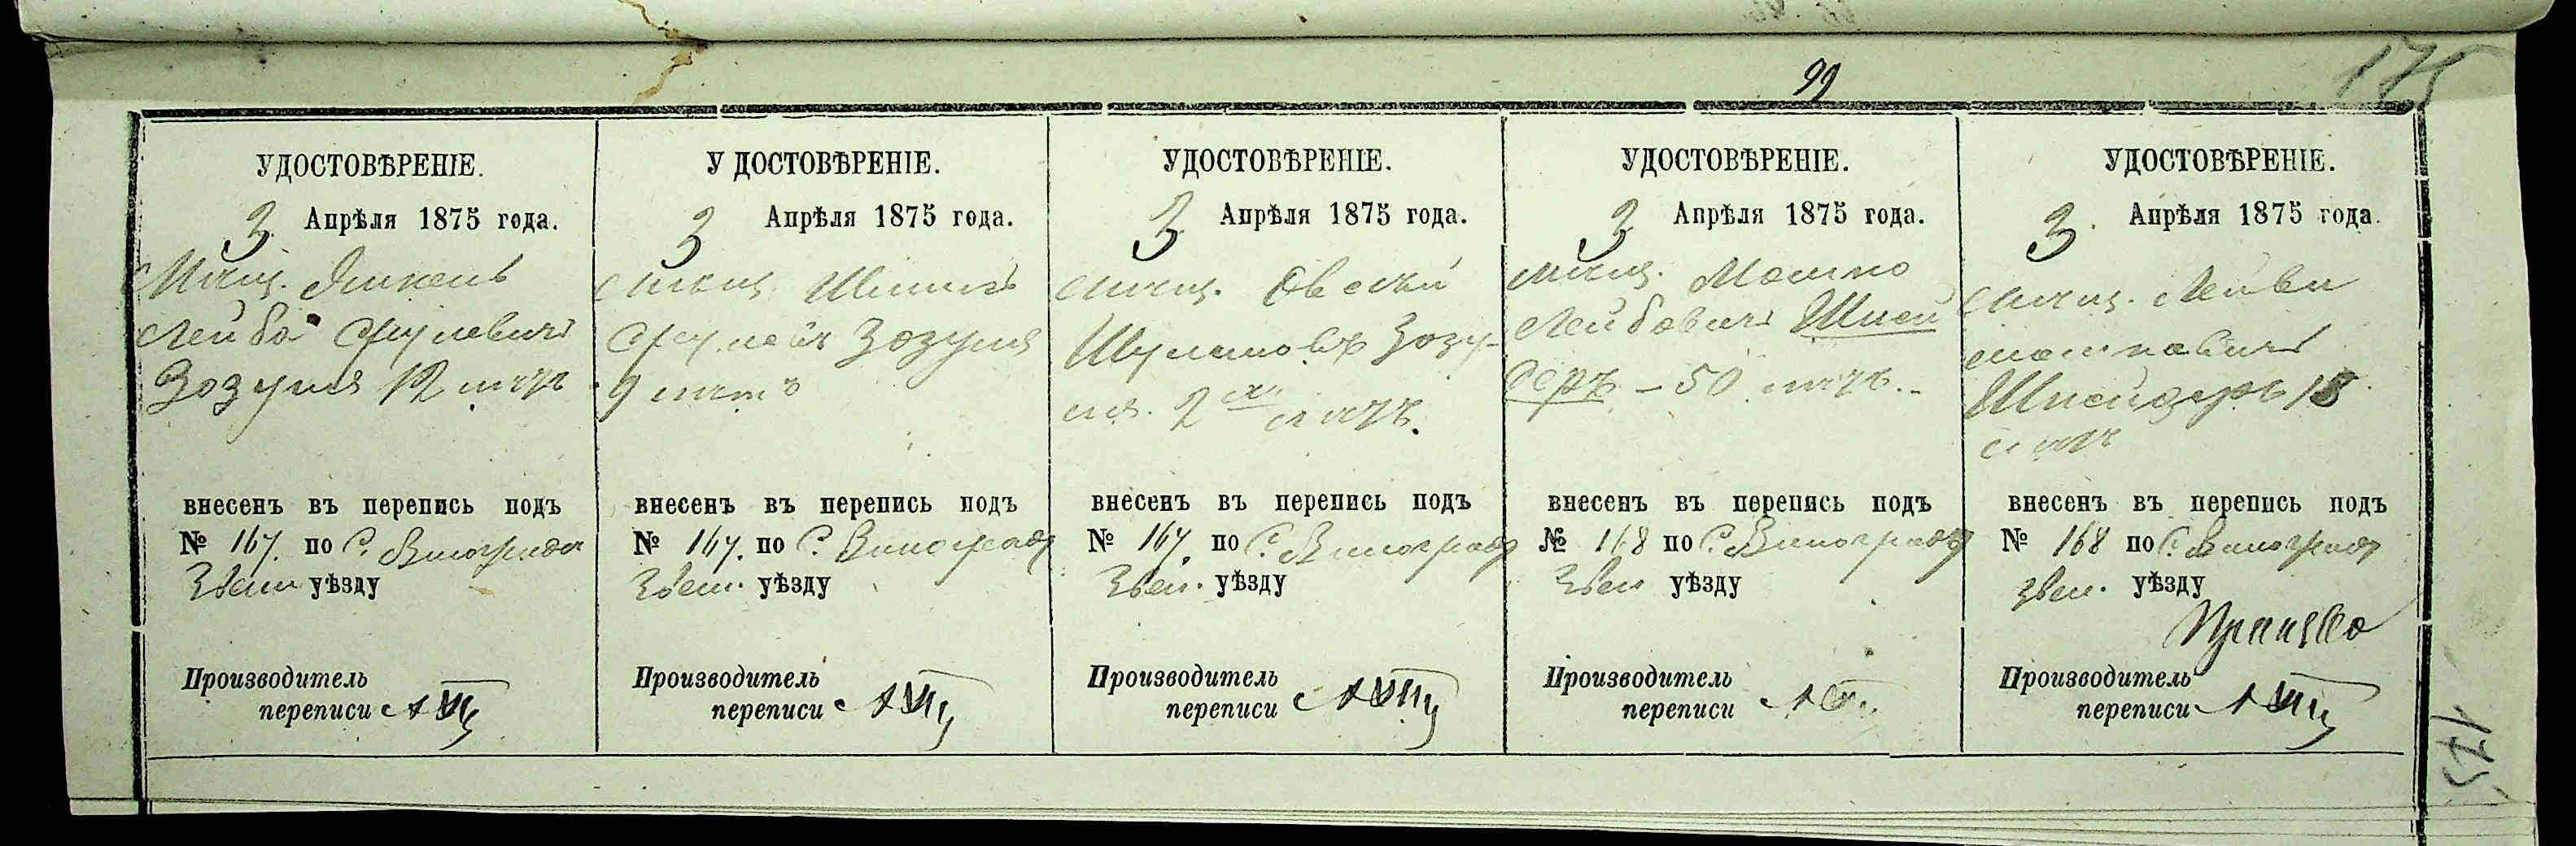 99
175
УДОСТОВѢРЕНІЕ.
3 Апрѣля 1875 года.
Мѣщ.
Лейба Сруневичъ
Зозуля 12 лѣтъ
внесенъ въ перепись подъ
№ 167. по С. Винограда
Звен уѣзду
Производитель
переписи
У ДОСТОВѢРЕНІЕ.
3 Апрѣля 1875 года.
Мѣщ.
Зозуля
9 лѣтъ
внесенъ въ перепись подъ
№ 167. по С. Виноград
Звен. уѣзду
Производитель
переписи
УДОСТОВѢРЕНІЕ.
3 Апрѣля 1875 года.
Мѣщ. Овсѣй
Шулимовъ Зозу-
ля. 2х лѣтъ.
внесенъ въ перепись подъ
№ 167. по С. Виноград
Звен. уѣзду
Производитель
переписи
УДОСТОВѢРЕНІЕ.
3 Апрѣля 1875 года.
Мѣщ. Мошко
Лейбовичъ Шней
деръ - 50 лѣтъ.-
внесенъ въ перепись подъ
№ 168 по С. Виноград
Звен уѣзду
Производитель
переписи
УДОСТОВѢРЕНІЕ.
3. Апрѣля 1875 года.
Мѣщ. Лейви
Мошковичъ
Шнейдеръ 18
лѣтъ
внесенъ въ перепись подъ
№ 168 по С. Виноград
Звен. уѣзду
Производитель
переписи
175